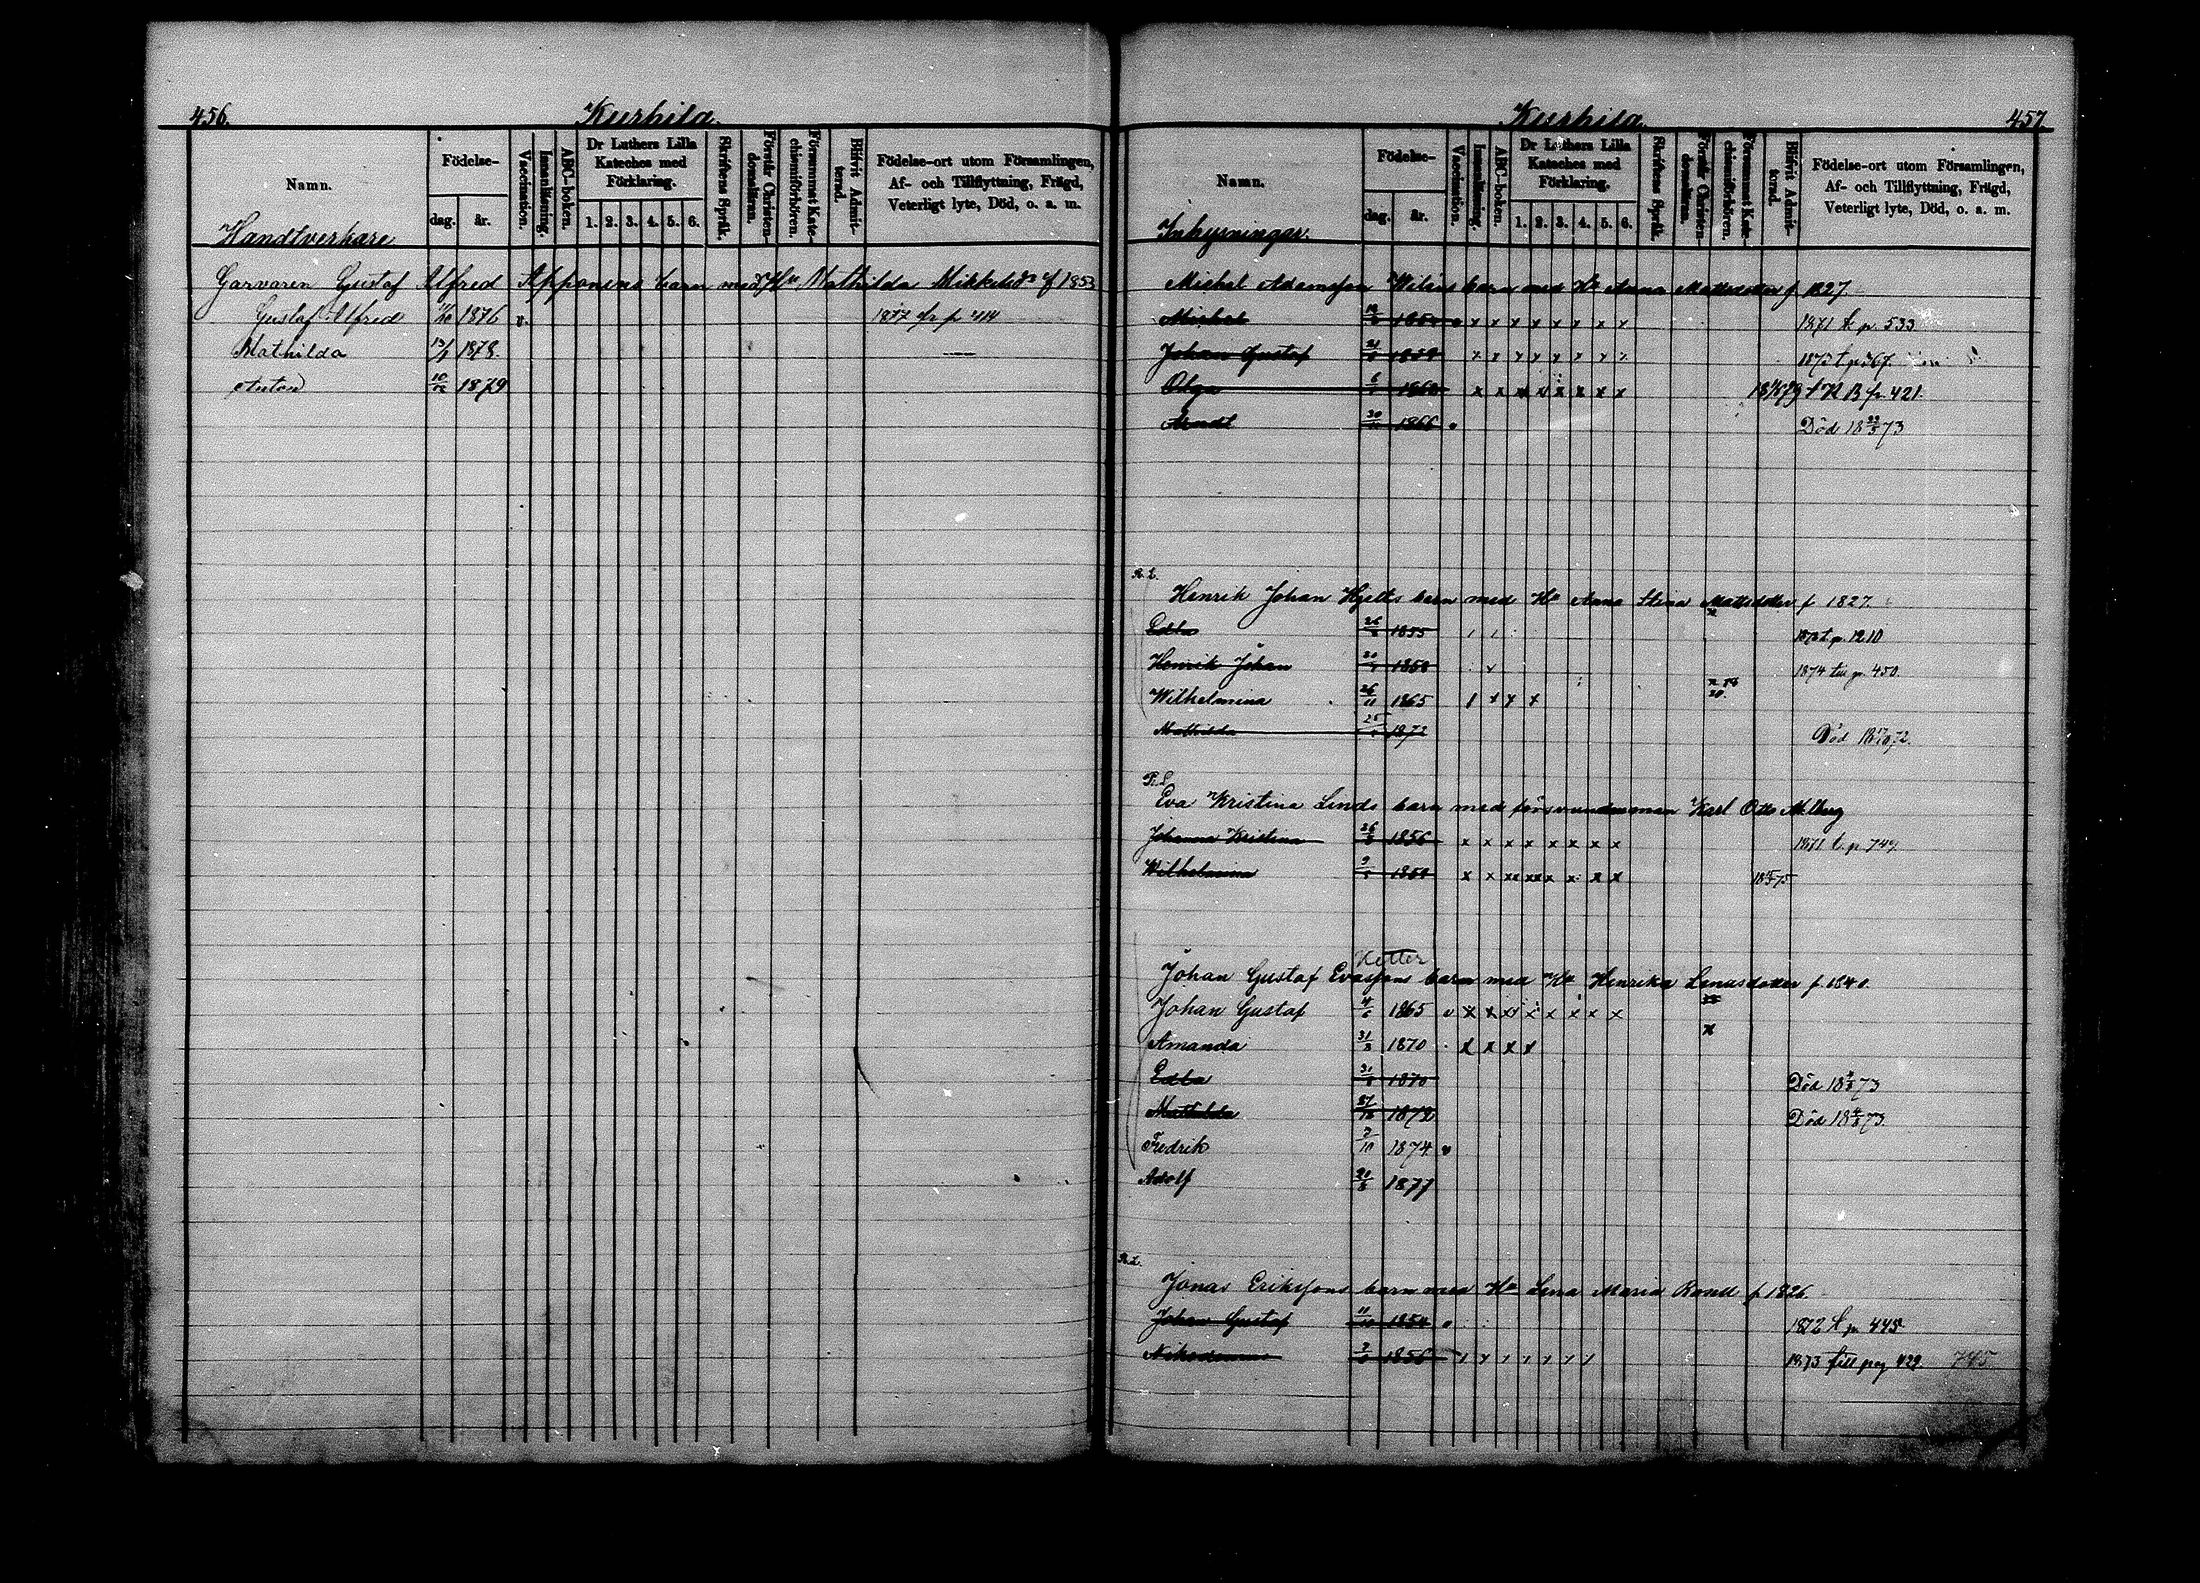 456. Kurhila.
Namn. Födelse- dag. år. Vaccination. Innanläsning. ABC-boken. Dr Luthers Lilla Kateches med Förklaring. 1. 2. 3. 4. 5. 6. Skriftens Språk. Förstår Christendomsläran. Försummat Katechismiförhören. Blifvit Admitterad. Födelse-ort utom Församlingen, Af- och Tillflyttning, Frägd, Veterligt lyte, Död, o. a. m.
Handtverkare
Garvaren Gustaf Alfred Apponens barn med Hu Mathilda Mikkelsdr f 1853
Gustaf Alfred 1876 v. 1877 fr p 414
Mathilda 1878.
Anton 10/12 1879
Kurhila. 457.
Namn. Födelse- dag. år. Vaccination. Innanläsning. ABC-boken. Dr Luthers Lilla Kateches med Förklaring. 1. 2. 3. 4. 5. 6. Skriftens Språk. Förstår Christendomsläran. Försummat Katechismiförhören. Blifvit Admitterad. Födelse-ort utom Församlingen, Af- och Tillflyttning, Frägd, Veterligt lyte, Död, o. a. m.
Inhysningar.
Michel Adamsson Wilens barn med Hu Anna Mattsdotter f 1827
Michel x x x x x x x x 1871 t. p. 533
Johan Gustaf 1859 x x x x x x x x 1873 t. p. 367.
Olga x x x x x x x x 79 t K B p. 421.
1866 Död 18 73
R. L.
Henrik Johan Hjelts barn med Hu Anna Stina Mattsdotter f 1827.
Edla 1855 t. p. 1210
Henrik Johan 1874 till p. 450.
Wilhelmina 26/11 1865 x x x
Mathilda 1872 Död 72.
Eva Kristina Linds barn med försvundne man Karl Otto Ahlberg
Johanna Kristina 1856 x x x x x x x x 1871 t. p. 749
Wilhelmina x x xx xx x x x x 75
Ketter
Johan Gustaf Evassons barn med Hu Henrika Linusdotter f 1840
Johan Gustaf 4/6 1865 v x x x x x x x x
Amanda 31/8 1870 x x x x
Edla 1870 Död 18 73
Mathilda 1872 Död 18 73.
Fredrik 1874 v
Adolf 1877
R. L.
Jonas Erikssons barn med Hu Lena Maria f 1826.
Johan Gustaf 1872 t. p. 445
Nikodemus 1856 1873 till pag 429. 745